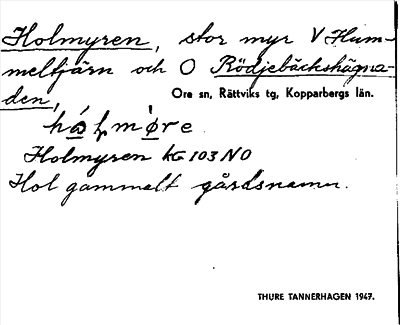 Holmyren, stor myr V Hum-
meltjärn och O Rödjebäckshägna-
den,
Ore sn, Rättviks tg, Kopparbergs län.
Holmyren KG 103 NO
Hol gammalt gårdsnamn.
THURE TANNERHAGEN 1947.